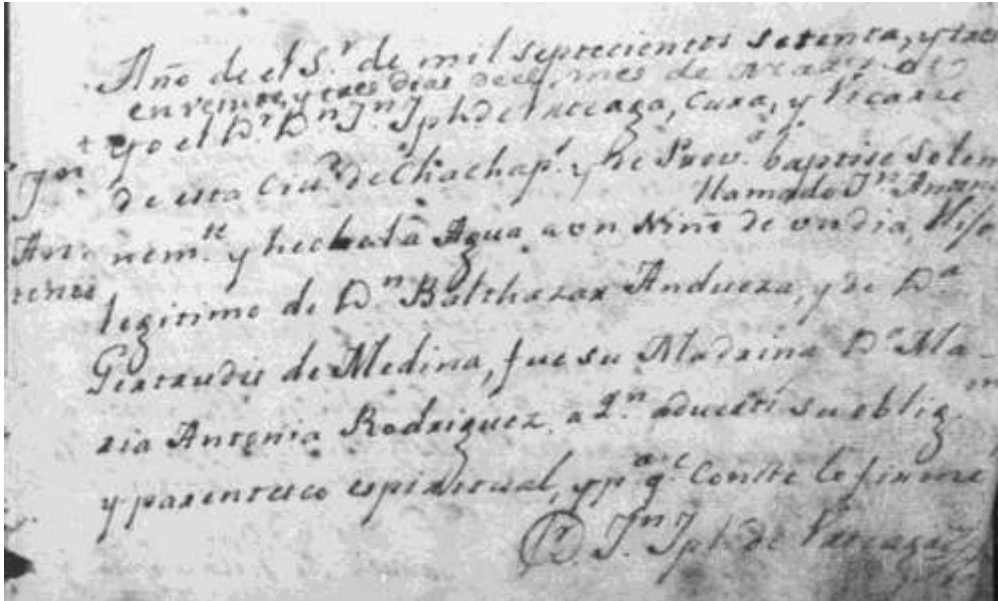 Año de el S.r de mil septecientos setenta, y tres
en veinte, y tres dias de el mes de Marzo
+ yo el D.r D.n J.n Jph. de Cura, y Vicario
J.n de esta Ciu.d de Chachap.s y su Prov.a baptisé Solem
llamado J.n Antonio
Anto nem.te y heche la Agua a vn Niño de vn dia, Hijo
legitimo de D.n Balthazar Andueza, y de D.a
Gertrudis de Medina, fue su Madrina D.a Ma-
ria Antonia Rodriguez, a q.n adverti su oblig.on
y parentesco espiritual, y p.a q.e Conste lo firmé
J.n Jph. de